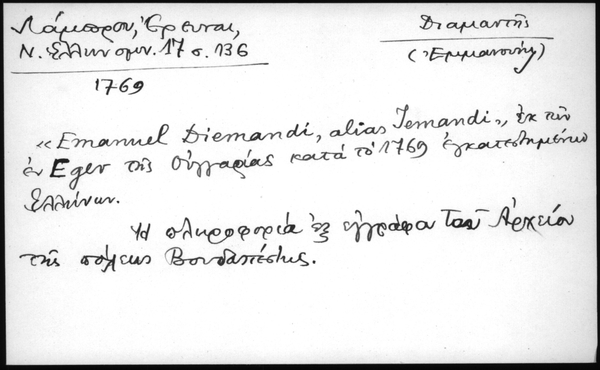 Λάμπρου, Ἔρευναι,
Ν. Ἑλληνομν. 17 σ. 136
1769
Διαμαντῆς
(Ἐμμανουήλ)
«Emanuel Diemandi, alias Jemandi», ἐκ τῶν
ἐν Eger τῆς Οὐγγαρίας κατά τὸ 1769 ἐγκατεστημένων
Ἑλλήνων.
Ἡ πληροφορία ἐξ ἐγγράφου τοῦ Ἀρχείου
τῆς πόλεως Βουδαπέστης.